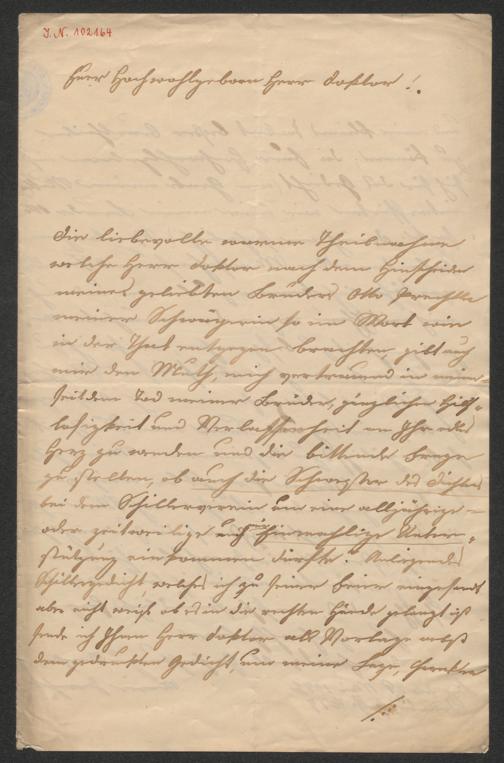 I. N. 102164
Euer Hochwohlgeboren Herr Doktor!
Die liebevolle warme Theilnahme
welche Herr Doktor nach dem Hinscheiden
meines geliebten Bruders Otto Prechtler
meiner Schwägerin so im Wort wie
in der That entgegen brachten, gibt auch
mir den Muth, mich vertrauend in meiner
seit dem Tod meiner Brüder, gänzlichen Hilf-
losigkeit und Verlassenheit an Ihr edles
Herz zu wenden und die bittende Frage
zu stellen, ob auch die Schwester des Dichters
bei dem Schillerverein um eine alljährige
oder zeitweilige Unter-
stützung einkommen dürfte. Beiliegendes
Schillergedicht, welches ich zu seiner Feier eingesandt
aber nicht weiß ob es in die rechten Hände gelangt ist
sende ich Ihnen Herr Doktor als Vorlage nebst
dem gedruckten Gedicht, um meine Lage,